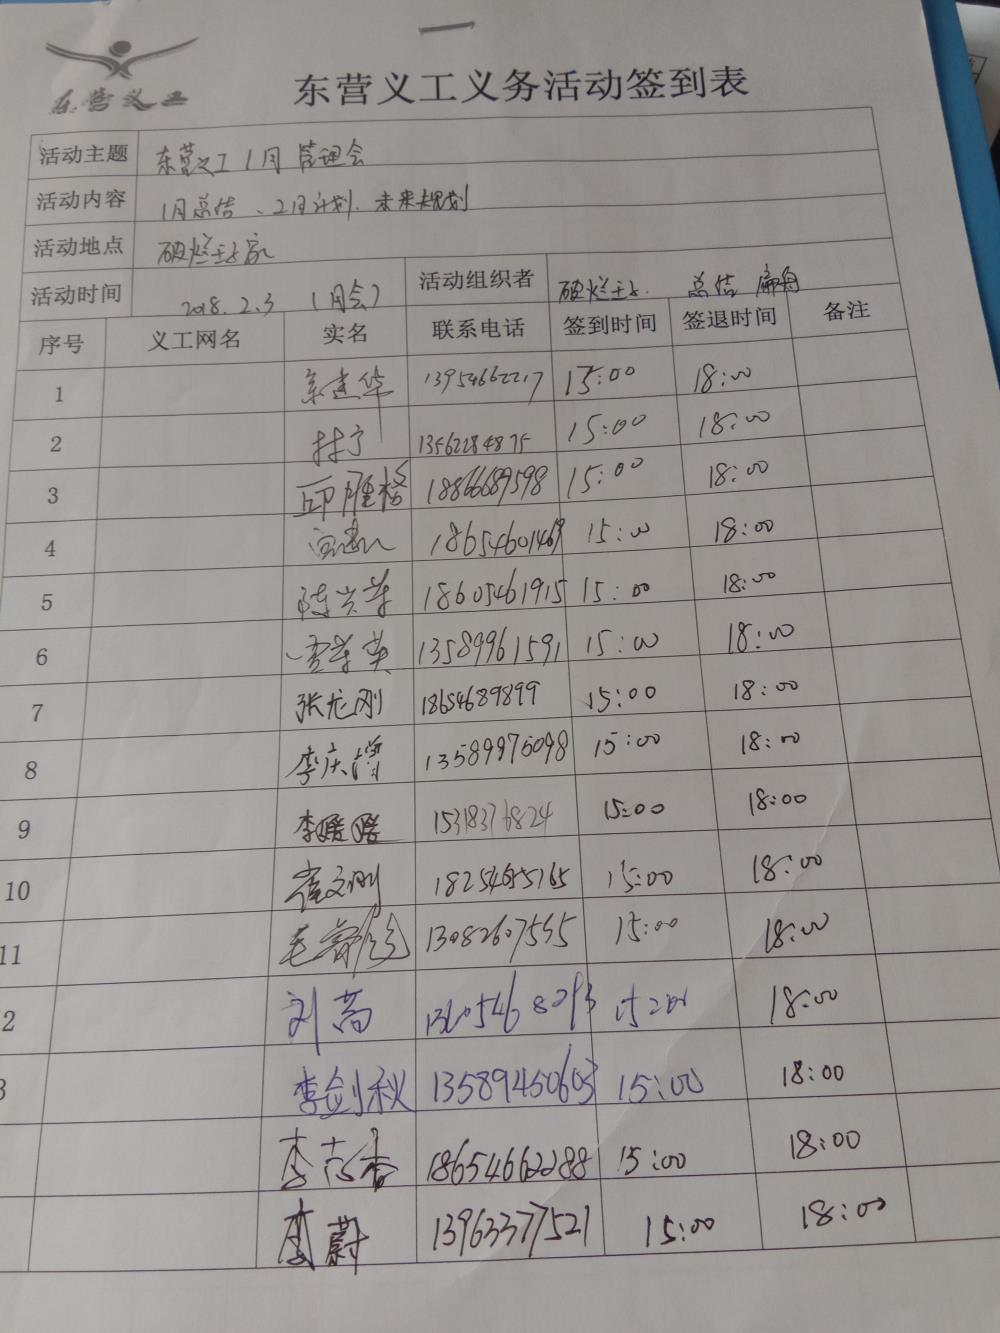 东营义工
东营义工义务活动签到表
活动主题 东营义工1月管理会
活动内容 1月总结、2月计划、未来规划
活动地点 破烂王家
活动时间 2018.2.3 (月会) 活动组织者 破烂王 总结 扁舟
序号 义工网名 实名 联系电话 签到时间 签退时间 备注
1 13954662217 15:00 18:00
2 林宁 13562284875 15:00 18:00
3 邱雅格 18866689598 15:00 18:00
4 18654601469 15:00 18:00
5 陈兴华 18605461915 15:00 18:00
6 13589961591 15:00 18:00
7 张龙刚 18654689899 15:00 18:00
8 李庆增 13589975098 15:00 18:00
9 李 15318376824 15:00 18:00
10 崔文刚 18254655165 15:00 18:00
11 毛 13082607555 15:00 18:00
2 刘芳 13605468093 15:00 18:00
3 李剑秋 13589450603 15:00 18:00
李志香 18654662288 15:00 18:00
李蔚 13963377521 15:00 18:00